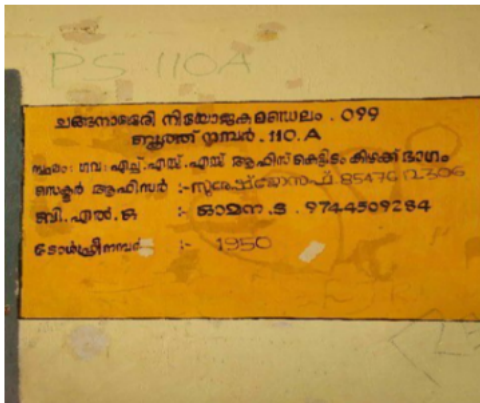 PS 110A
ചങ്ങനാശ്ശേരി നിയോജകമണ്ഡലം . 099
ബൂത്ത് നമ്പർ . 110. A
സ്ഥലം: ഗവ: എച്ച്.എസ്.എസ് ആഫീസ് കെട്ടിടം കിഴക്ക് ഭാഗം
സെക്ടർ ആഫീസർ :-
ബി.എൽ.ഒ :- ഓമന .ടി . 9744509284
ടോൾഫ്രീനമ്പർ :- 1950